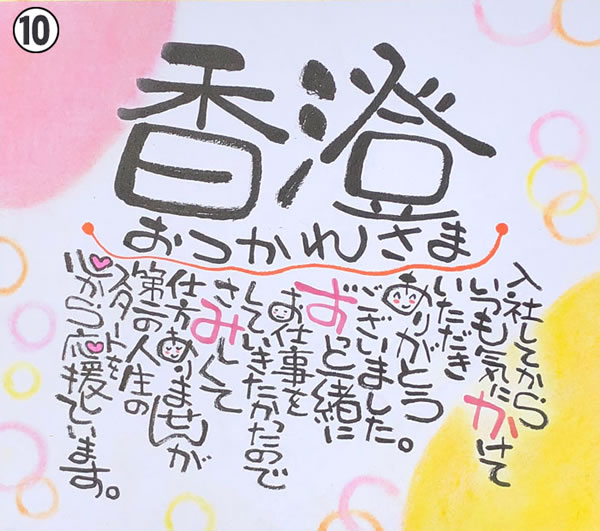 ⑩
香澄
おつかれさま
入社してから
いつも気にかけて
いただき
ありがとう
ございました。
ずっと一緒に
お仕事を
していきたかったので
さみしくて
仕方ありませんが
第二の人生の
スタートを
心から応援しています。